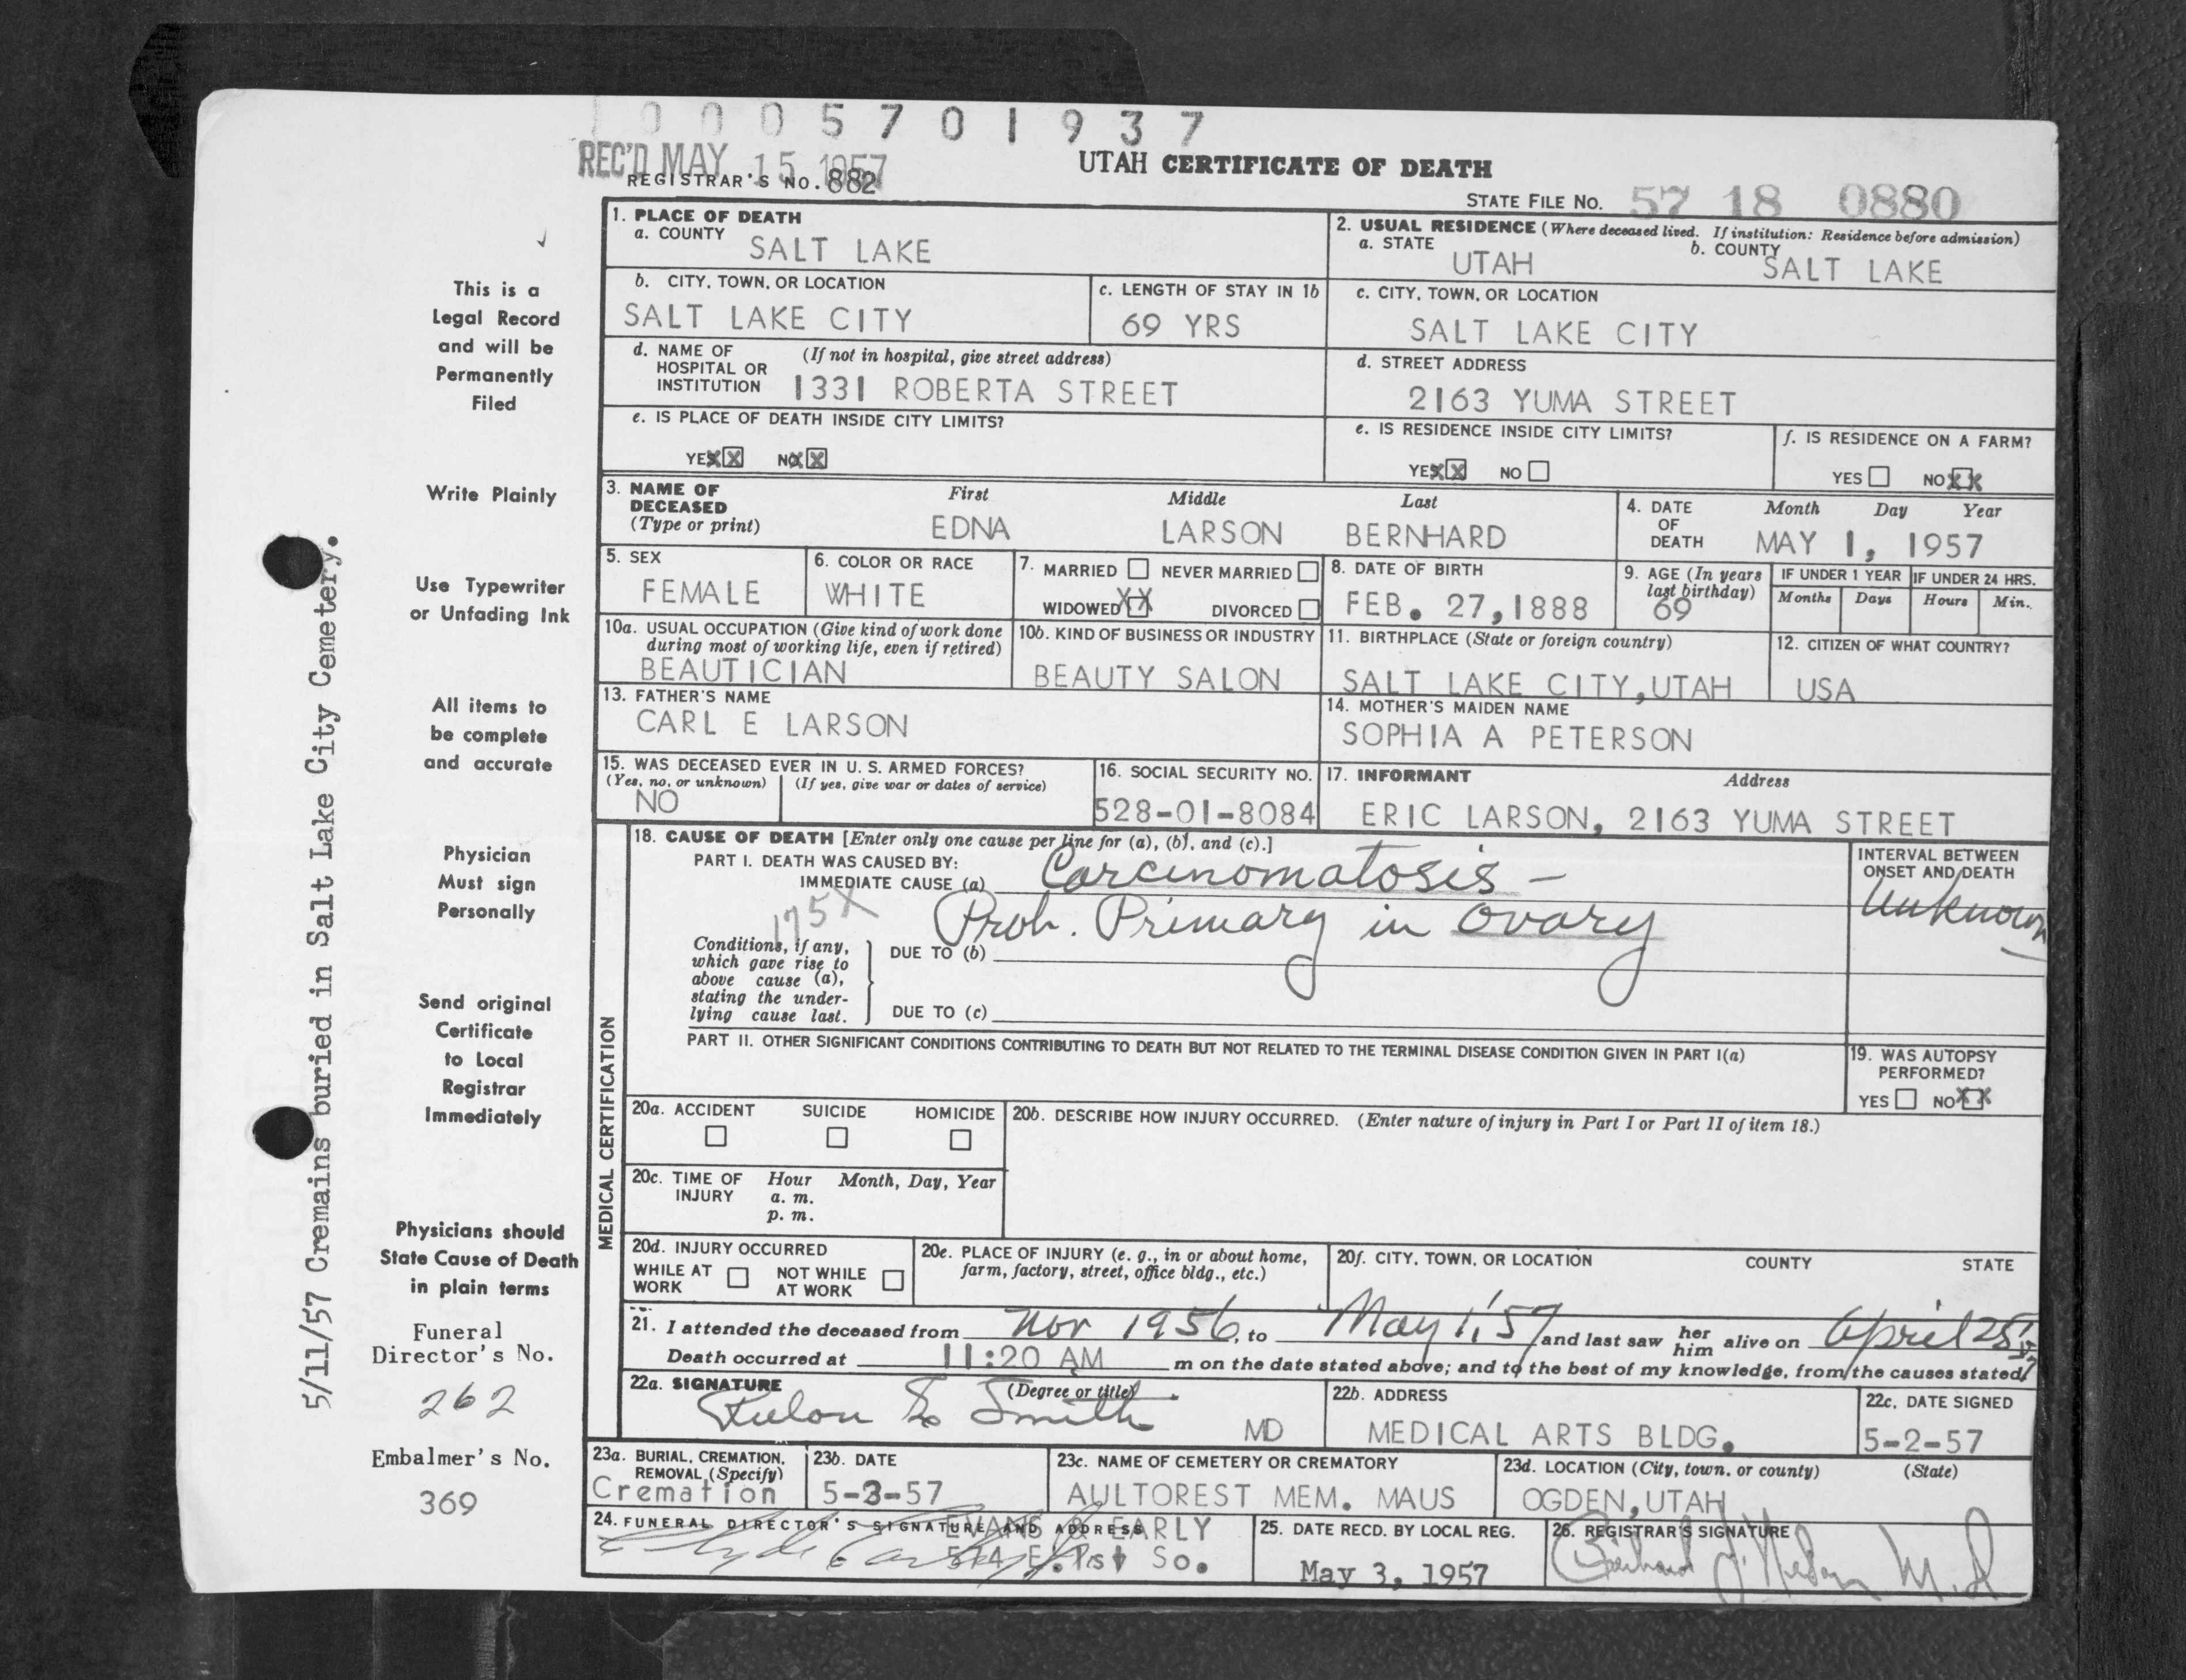 0005701937
REC'D MAY 15 1957
REGISTRAR'S NO. 882
UTAH CERTIFICATE OF DEATH
STATE FILE NO. 57 18 0880
1. PLACE OF DEATH
a. COUNTY SALT LAKE
2. USUAL RESIDENCE (Where deceased lived. If institution: Residence before admission)
a. STATE UTAH b. COUNTY SALT LAKE
b. CITY, TOWN, OR LOCATION SALT LAKE CITY
c. LENGTH OF STAY IN 1b 69 YRS
c. CITY, TOWN, OR LOCATION SALT LAKE CITY
d. NAME OF HOSPITAL OR INSTITUTION (If not in hospital, give street address) 1331 ROBERTA STREET
d. STREET ADDRESS 2163 YUMA STREET
e. IS PLACE OF DEATH INSIDE CITY LIMITS?
YES XX NO XX
e. IS RESIDENCE INSIDE CITY LIMITS?
YES XX NO
f. IS RESIDENCE ON A FARM?
YES NO XX
3. NAME OF DECEASED (Type or print)
First Middle Last
EDNA LARSON BERNHARD
4. DATE OF DEATH Month Day Year
MAY 1, 1957
5. SEX FEMALE
6. COLOR OR RACE WHITE
7. MARRIED NEVER MARRIED
WIDOWED XX DIVORCED
8. DATE OF BIRTH FEB. 27, 1888
9. AGE (In years last birthday) 69
IF UNDER 1 YEAR Months Days
IF UNDER 24 HRS. Hours Min.
10a. USUAL OCCUPATION (Give kind of work done during most of working life, even if retired) BEAUTICIAN
10b. KIND OF BUSINESS OR INDUSTRY BEAUTY SALON
11. BIRTHPLACE (State or foreign country) SALT LAKE CITY, UTAH
12. CITIZEN OF WHAT COUNTRY? USA
13. FATHER'S NAME CARL E LARSON
14. MOTHER'S MAIDEN NAME SOPHIA A PETERSON
15. WAS DECEASED EVER IN U. S. ARMED FORCES?
(Yes, no, or unknown) (If yes, give war or dates of service)
NO
16. SOCIAL SECURITY NO. 528-01-8084
17. INFORMANT Address
ERIC LARSON, 2163 YUMA STREET
MEDICAL CERTIFICATION
18. CAUSE OF DEATH [Enter only one cause per line for (a), (b), and (c).]
PART I. DEATH WAS CAUSED BY:
IMMEDIATE CAUSE (a) Carcinomatosis -
175X
Prob. Primary in Ovary
INTERVAL BETWEEN ONSET AND DEATH
Unknown
Conditions, if any, which gave rise to above cause (a), stating the underlying cause last.
DUE TO (b)
DUE TO (c)
PART II. OTHER SIGNIFICANT CONDITIONS CONTRIBUTING TO DEATH BUT NOT RELATED TO THE TERMINAL DISEASE CONDITION GIVEN IN PART I(a)
19. WAS AUTOPSY PERFORMED?
YES NO XX
20a. ACCIDENT SUICIDE HOMICIDE
20b. DESCRIBE HOW INJURY OCCURRED. (Enter nature of injury in Part I or Part II of item 18.)
20c. TIME OF INJURY Hour Month, Day, Year
a. m.
p. m.
20d. INJURY OCCURRED
WHILE AT WORK NOT WHILE AT WORK
20e. PLACE OF INJURY (e. g., in or about home, farm, factory, street, office bldg., etc.)
20f. CITY, TOWN, OR LOCATION COUNTY STATE
21. I attended the deceased from Nov 1956, to May 1, '57 and last saw her him alive on April 25 '57
Death occurred at 11:20 AM m on the date stated above; and to the best of my knowledge, from the causes stated
22a. SIGNATURE (Degree or title)
Smith MD
22b. ADDRESS MEDICAL ARTS BLDG.
22c. DATE SIGNED 5-2-57
23a. BURIAL, CREMATION, REMOVAL (Specify) Cremation
23b. DATE 5-3-57
23c. NAME OF CEMETERY OR CREMATORY AULTOREST MEM. MAUS
23d. LOCATION (City, town, or county) (State) OGDEN, UTAH
24. FUNERAL DIRECTOR'S SIGNATURE AND ADDRESS
EVANS & EARLY
574 E. 1st So.
25. DATE RECD. BY LOCAL REG. May 3, 1957
26. REGISTRAR'S SIGNATURE
M.D.
This is a
Legal Record
and will be
Permanently
Filed
Write Plainly
Use Typewriter
or Unfading Ink
All items to
be complete
and accurate
Physician
Must sign
Personally
Send original
Certificate
to Local
Registrar
Immediately
Physicians should
State Cause of Death
in plain terms
Funeral
Director's No.
262
Embalmer's No.
369
5/11/57 Cremains buried in Salt Lake City Cemetery.